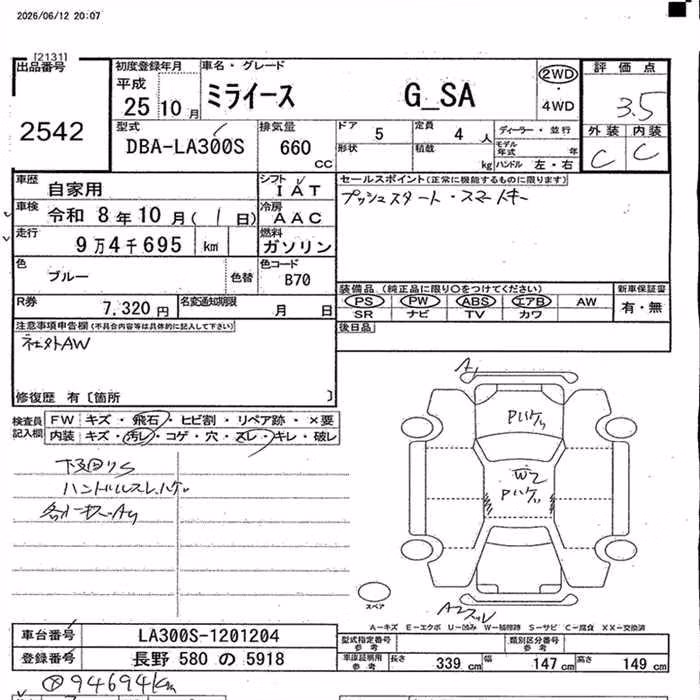 2026/06/12 20:07
[2131]
出品番号
2542
初度登録年月
平成
25年10月
車名・グレード
ミライース G_SA
2WD
・
4WD
評価点
3.5
外装 内装
C C
型式
DBA-LA300S
排気量
660 CC
ドア 5
形状
定員 4 人
積載 kg
ディーラー・並行
モデル年式 年
ハンドル 左・右
車歴
自家用
シフト
IAT
車検 令和 8年10月(1日)
冷房
AAC
走行
9万4千695 km
燃料
ガソリン
色
ブルー
色替
色コード
B70
R券
7,320円
名変通知期限
月 日
セールスポイント(正常に機能するものに限ります)
プッシュスタート・スマートキー
装備品(純正品に限り○をつけてください)
PS PW ABS エアB AW
SR ナビ TV カワ
新車保証書
有・無
後日品
注意事項申告欄(不具合内容等は具体的に記入して下さい)
社外AW
修復歴 有〔箇所 〕
検査員記入欄
FW キズ・飛石・ヒビ割・リペア跡・×要
内装 キズ・汚レ・コゲ・穴・スレ・キレ・破レ
下回りS
ハンドルスレ,ハゲ
A1
Pハゲ
W2
Pハゲ
A2スレ
スペア
A-キズ E-エクボ U-凹み W-補修跡 S-サビ C-腐食 XX-交換済
車台番号 LA300S-1201204
登録番号 長野 580 の 5918
型式指定番号参考
類別区分番号参考
車庫証明用参考
長さ 339cm 幅 147cm 高さ 149cm
94694km